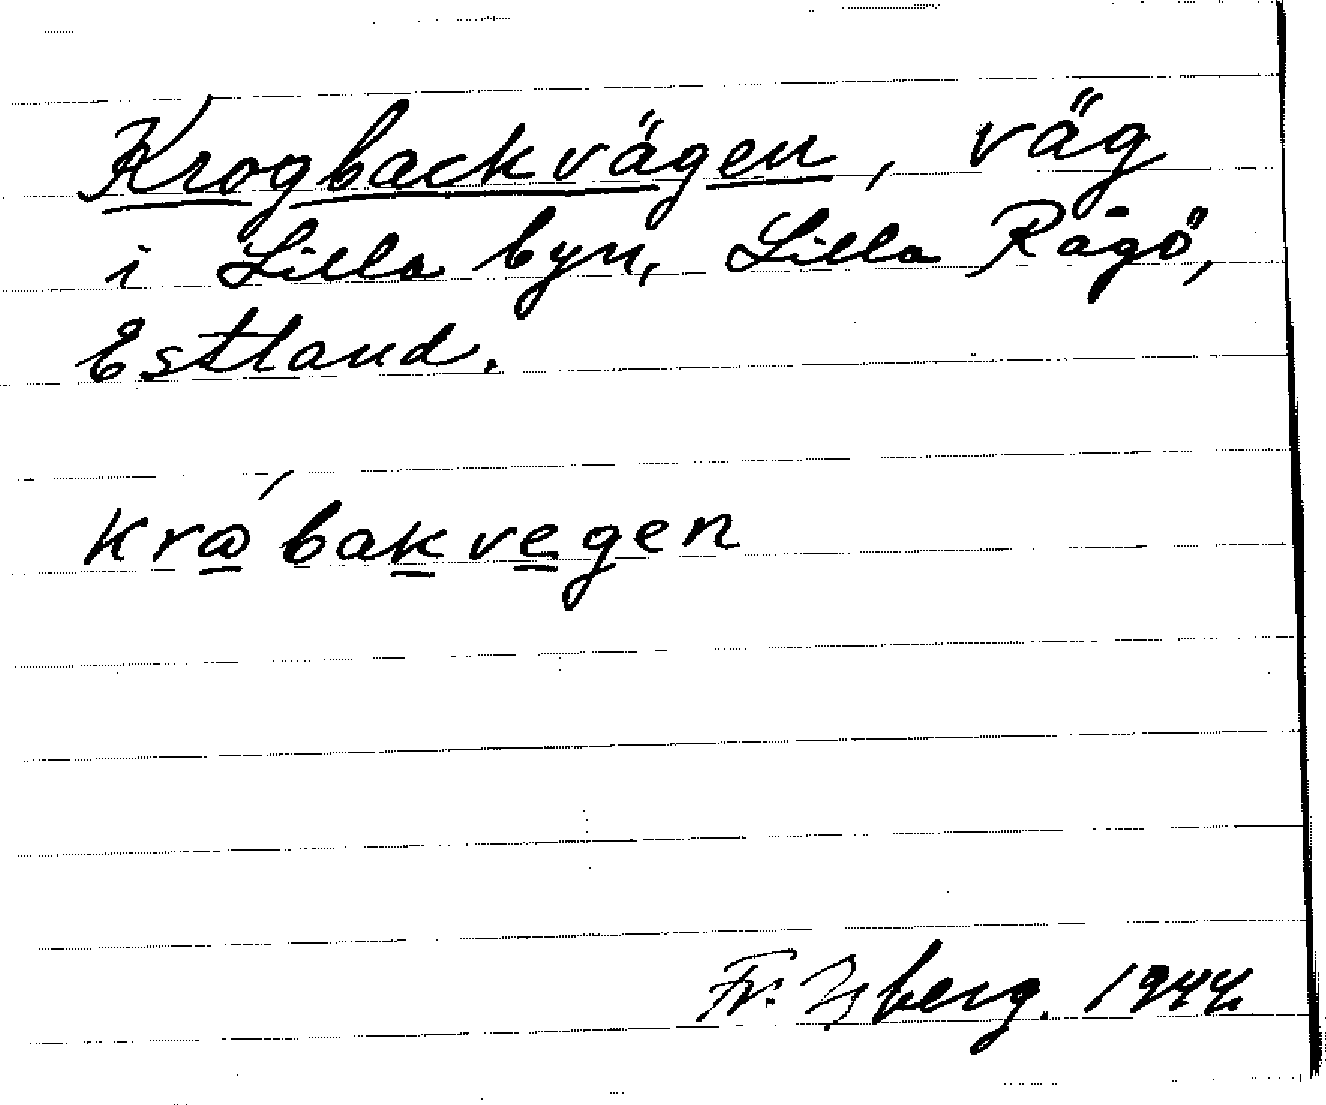 Krogbackvägen, väg
i Lilla byn, Lilla Rågö,
Estland.
krω´bakvegen
Fr. Isberg. 1944